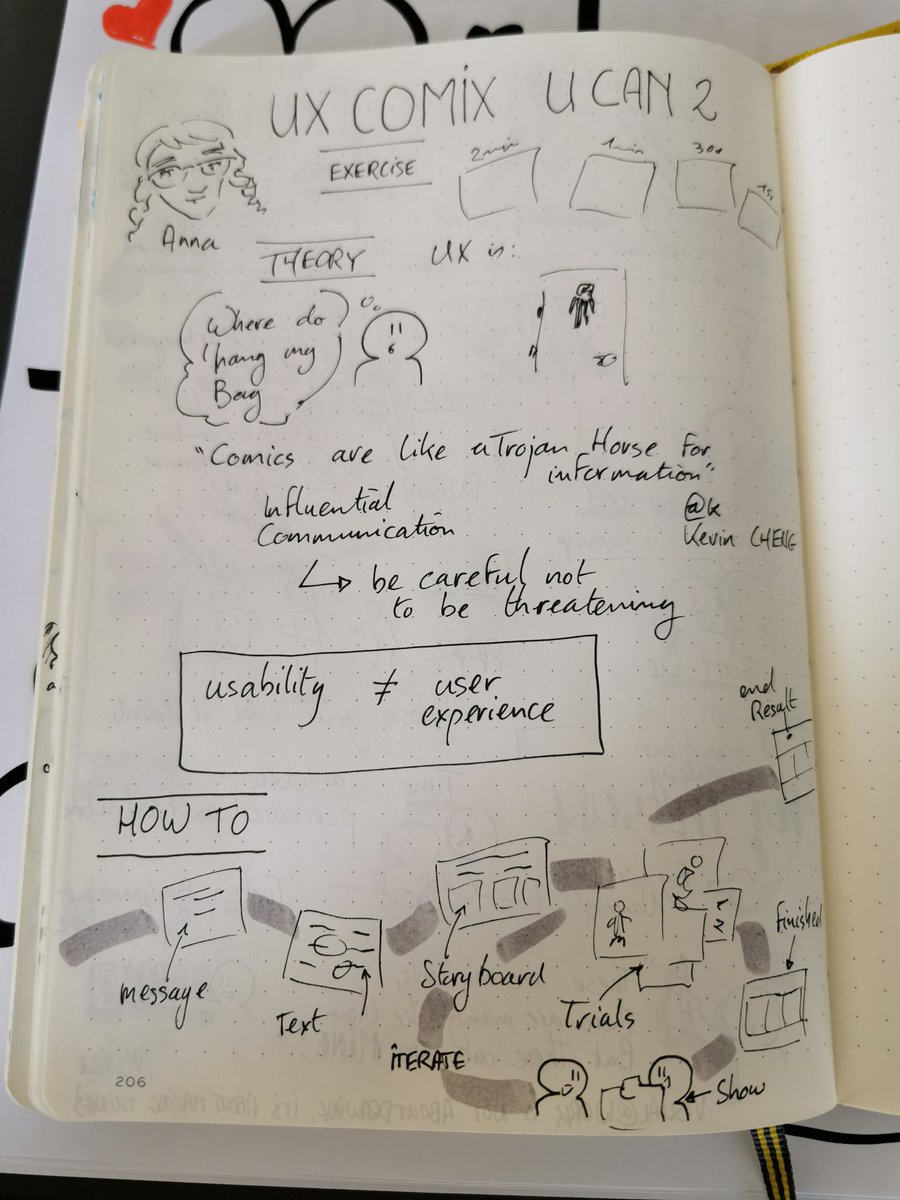 UX COMIX U CAN 2
EXERCISE
2min 1min 30s 15s
Anna
THEORY
UX is:
Where do
I hang my
Bag
"Comics are like a Trojan Horse for
information"
Influential
Communication
@k
Kevin CHENG
be careful not
to be threatening
usability ≠ user
experience
end
Result
HOW TO
message
Text
Storyboard
Trials
finished
ITERATE
Show
206